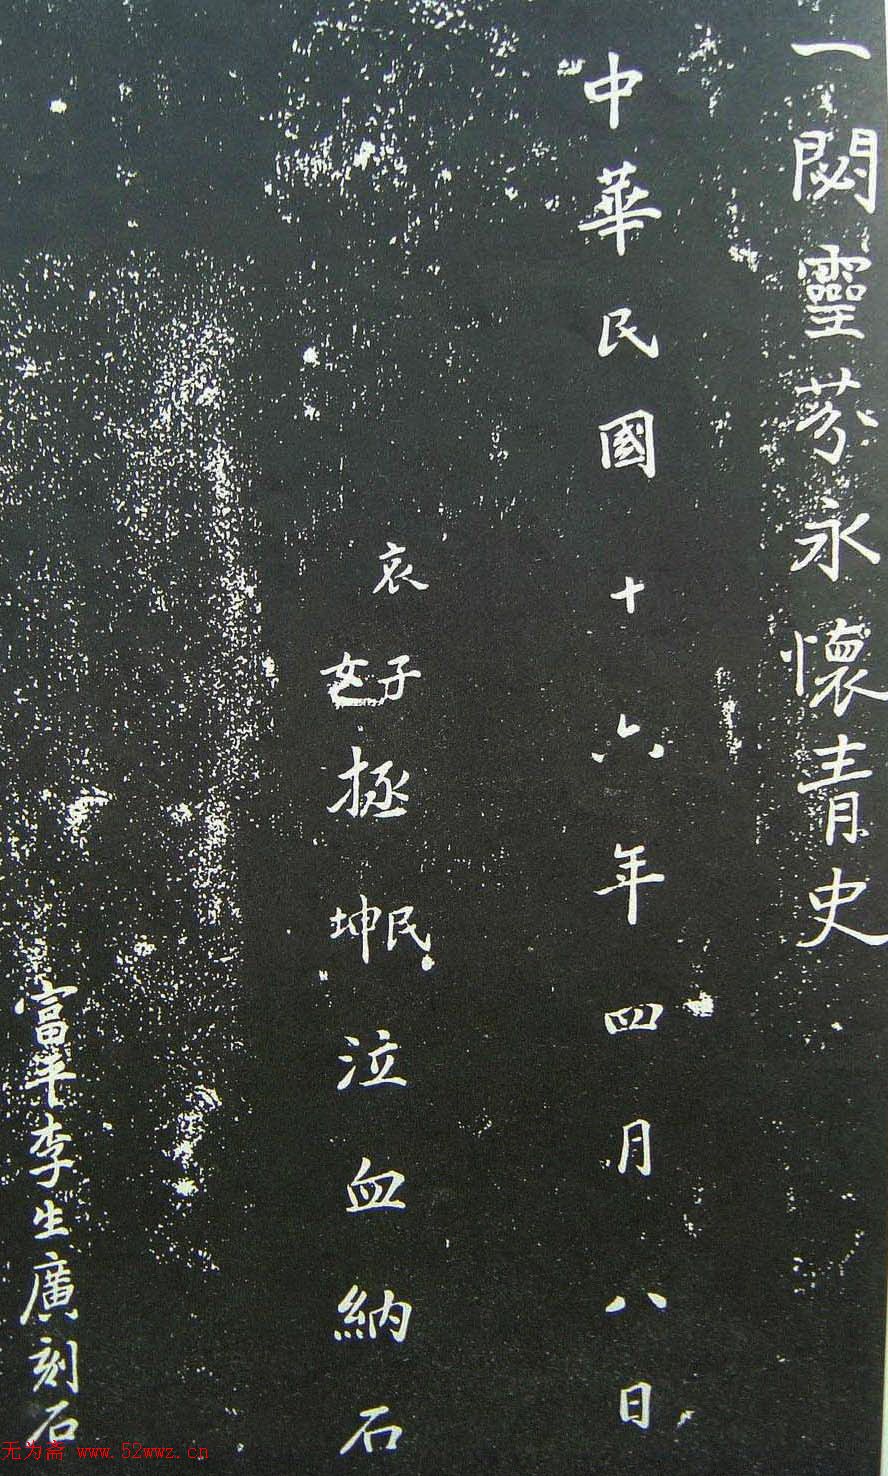 一閟靈芬永懷青史
中華民國十六年四月八日
哀子女拯民坤泣血納石
富平李生廣刻石
无为斋 www.52wwz.cn